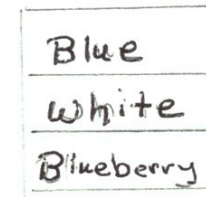 Blue
White
Blueberry